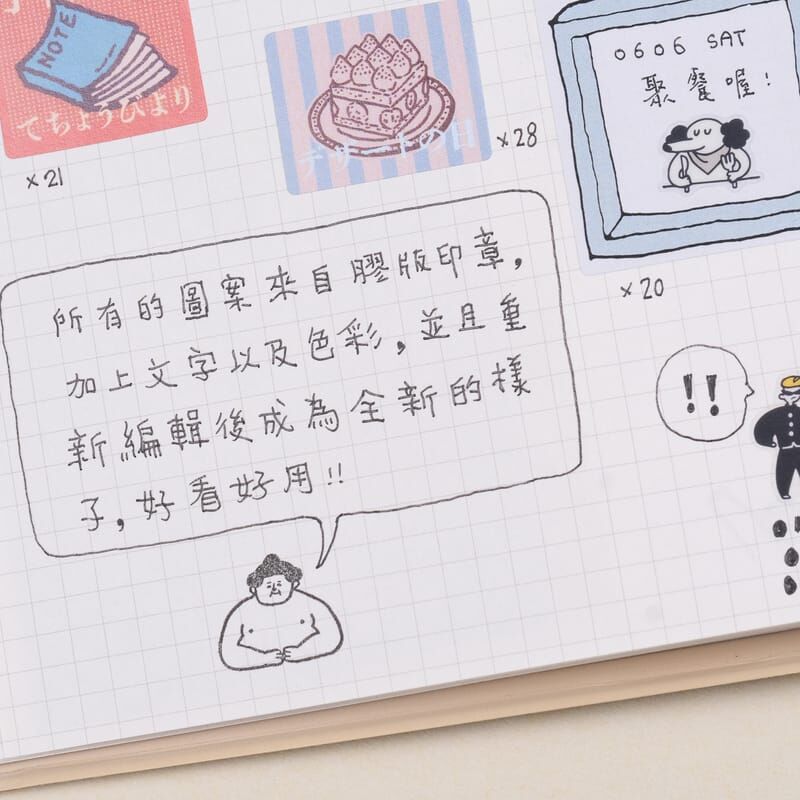 NOTE
てちょうびより
×21
デザートの日
×28
0606 SAT
聚餐喔!
×20
所有的圖案來自膠版印章,
加上文字以及色彩,並且重
新編輯後成為全新的樣
子,好看好用!!
!!